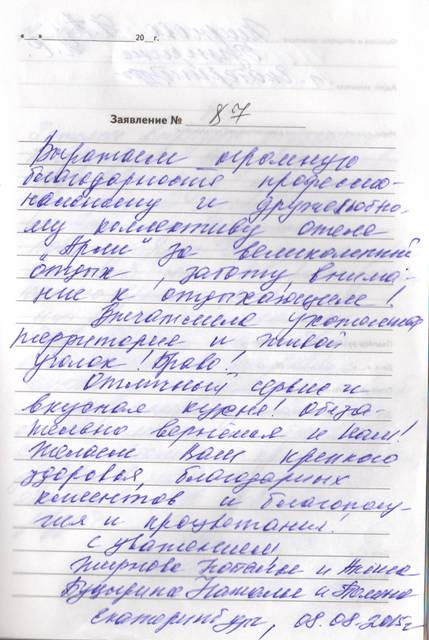 «__»__________ 20__г.
Заявление № 87
Выражаем огромную
благодарность профессио-
нальному и дружелюбно-
му коллективу отеля
за великолепный
отдых, заботу, внима-
ние к отдыхающим!
Впечатлила ухоженная
территория и живой
уголок! Браво!
Отличный сервис и
вкусная кухня! Обяза-
тельно вернёмся к Вам!
Желаем Вам крепкого
здоровья, благодарных
клиентов и благополу-
чия и процветания.
С уважением!
Наталья и
Наталья и
Екатеринбург, 08.08.2015г